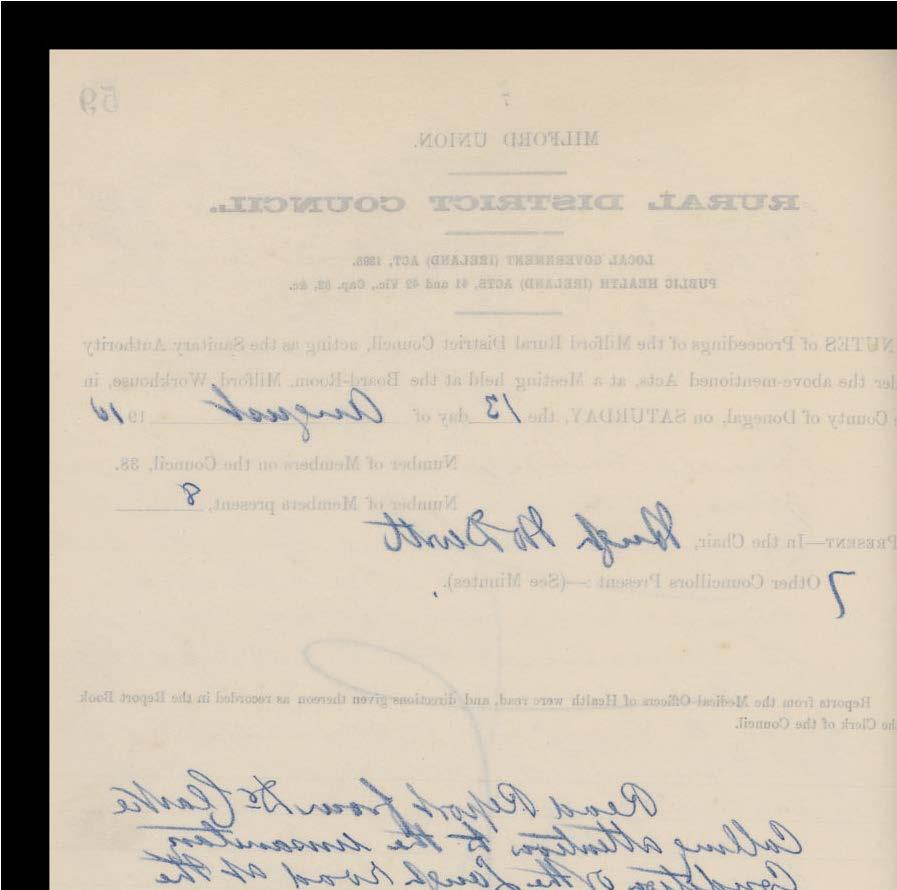 7
59
MILFORD UNION.
RURAL DISTRICT COUNCIL.
LOCAL GOVERNMENT (IRELAND) ACT, 1898.
PUBLIC HEALTH (IRELAND) ACTS, 41 and 42 Vic., Cap. 52, &c.
NUTES of Proceedings of the Milford Rural District Council, acting as the Sanitary Authority
der the above-mentioned Acts, at a Meeting held at the Board-Room, Milford Workhouse, in
e County of Donegal, on SATURDAY, the 13 day of August 1910
Number of Members on the Council, 38.
Number of Members present, 8
PRESENT—In the Chair, Hugh McDevitt
7 Other Councillors Present :—(See Minutes).
Reports from the Medical Officers of Health were read, and directions given thereon as recorded in the Report Book
the Clerk of the Council.
Read Report from Dr Clarke
Calling attention to the unsanitary
Condition of the road at the